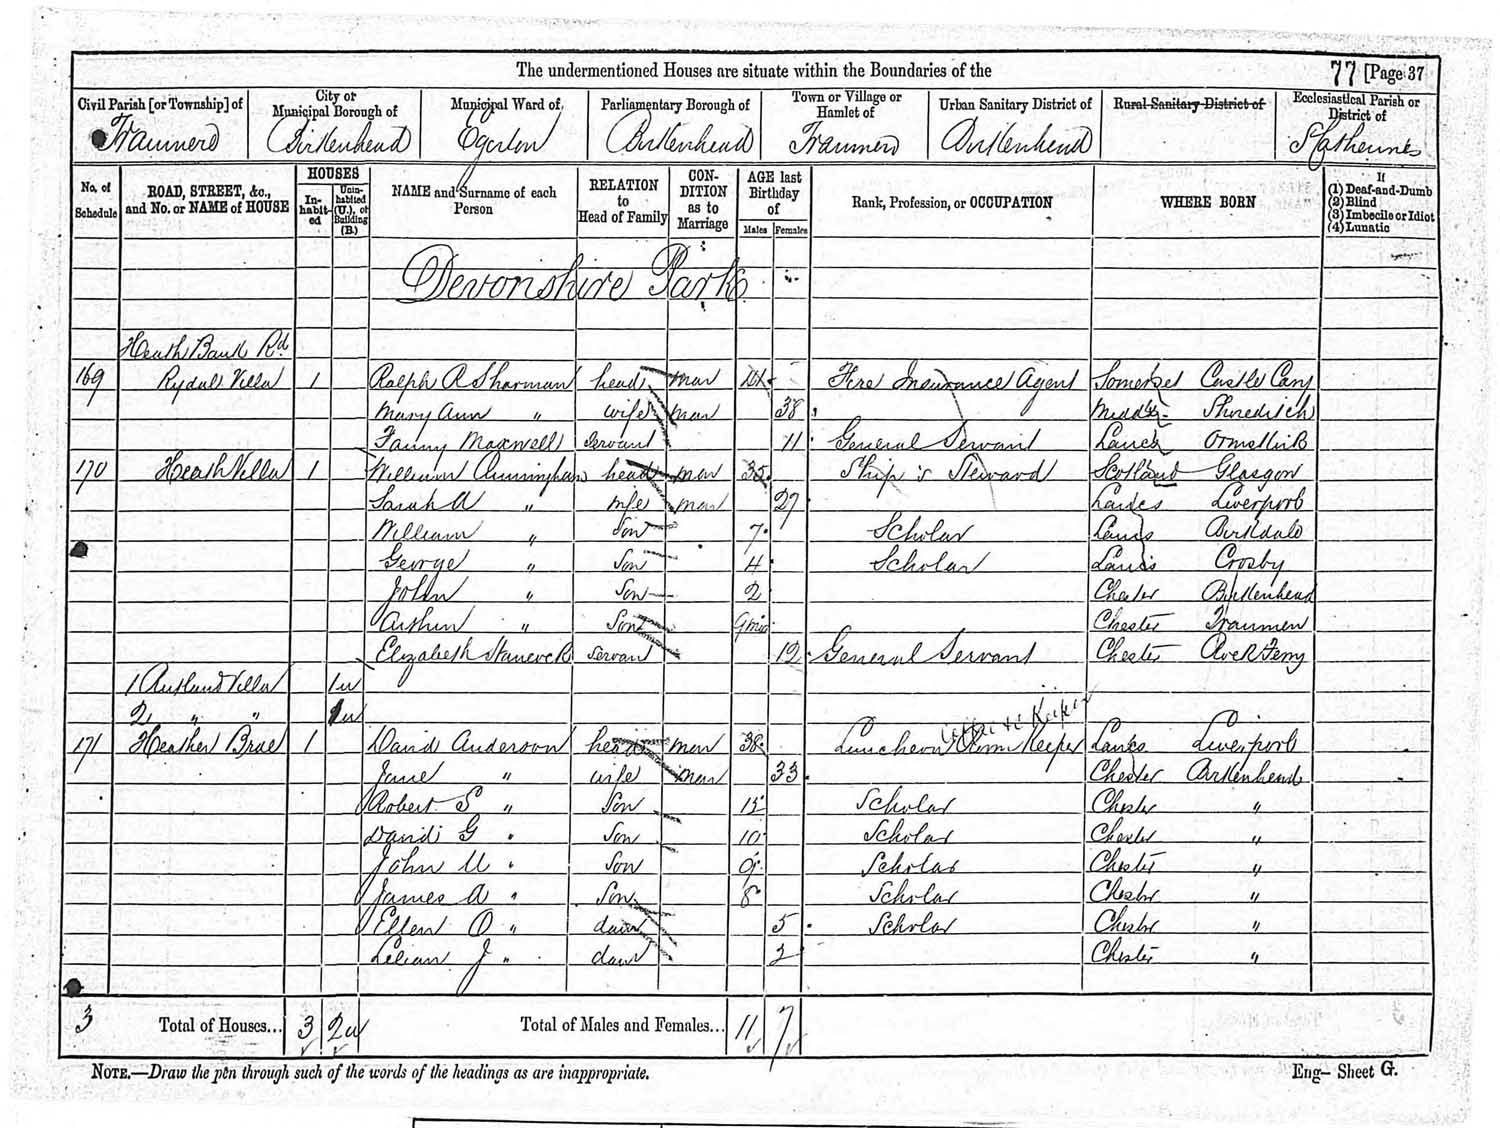 The undermentioned Houses are situate within the Boundaries of the 77 [Page 37
Civil Parish [or Township] of City or Municipal Borough of Municipal Ward of Parliamentary Borough of Town or Village or Hamlet of Urban Sanitary District of Rural Sanitary District of Ecclesiastical Parish or District of
Tranmere Birkenhead Egerton Birkenhead Tranmere Birkenhead St Catherines
No. of Schedule ROAD, STREET, &c., and No. or NAME of HOUSE HOUSES In-habit-ed Unin-habited (U.), or Building (B.) NAME and Surname of each Person RELATION to Head of Family CON-DITION as to Marriage AGE last Birthday of Males Females Rank, Profession, or OCCUPATION WHERE BORN If (1) Deaf-and-Dumb (2) Blind (3) Imbecile or Idiot (4) Lunatic
Devonshire Park
Heath Bank Rd
169 Rydal Villa 1 Ralph R Sharman head mar Fire Insurance Agent Somerset Castle Cary
Mary Ann " wife mar 38 Middx Shoreditch
Fanny Maxwell Servant General Servant Lancs Ormskirk
170 Heath Villa 1 William Cunningham head mar 35 Ship's Steward Scotland Glasgow
Sarah A " wife mar 27 Lancs Liverpool
William " Son 7 Scholar Lancs Birkdale
George " Son 4 Scholar Lancs Crosby
John " Son 2 Chester Birkenhead
Arthur " Son 9 mo Chester Tranmere
Elizabeth Hancock Servant 12 General Servant Chester Rock Ferry
1 Rutland Villa 1u
2 " " 1u
171 Heather Brae 1 David Anderson head mar 38 Luncheon Room Keeper Lancs Liverpool
Jane " wife mar 33 Chester Birkenhead
Robert S " Son Scholar Chester "
David G " Son 10 Scholar Chester "
John " Son 9 Scholar Chester "
James A " Son 8 Scholar Chester "
Ellen O " daur 5 Scholar Chester "
Lilian J " daur Chester "
3 Total of Houses... 3 2u Total of Males and Females... 11 7
NOTE.—Draw the pen through such of the words of the headings as are inappropriate. Eng— Sheet G.